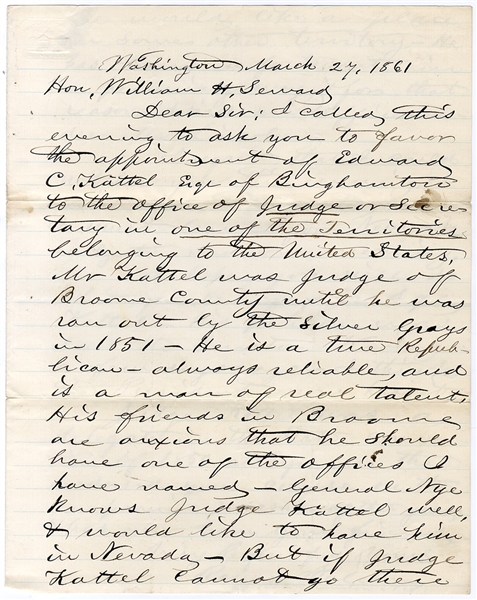 Washington March 27, 1861
Hon, William H. Seward
Dear Sir; I called this
evening to ask you to favor
the appointment of Edward
C. Kattel Esqr of Binghamton
to the office of Judge or Secre
tary in one of the Territories
belonging to the United States.
Mr Kattel was Judge of
Broome County until he was
ran out by the Silver Grays
in 1851 – He is a true Repub-
lican – always reliable, and
is a man of real talent.
His friends in Broome
are anxious that he should
have one of the offices I
have named – General Nye
knows Judge Kattel well,
& would like to have him
in Nevada – But if Judge
Kattel cannot go there